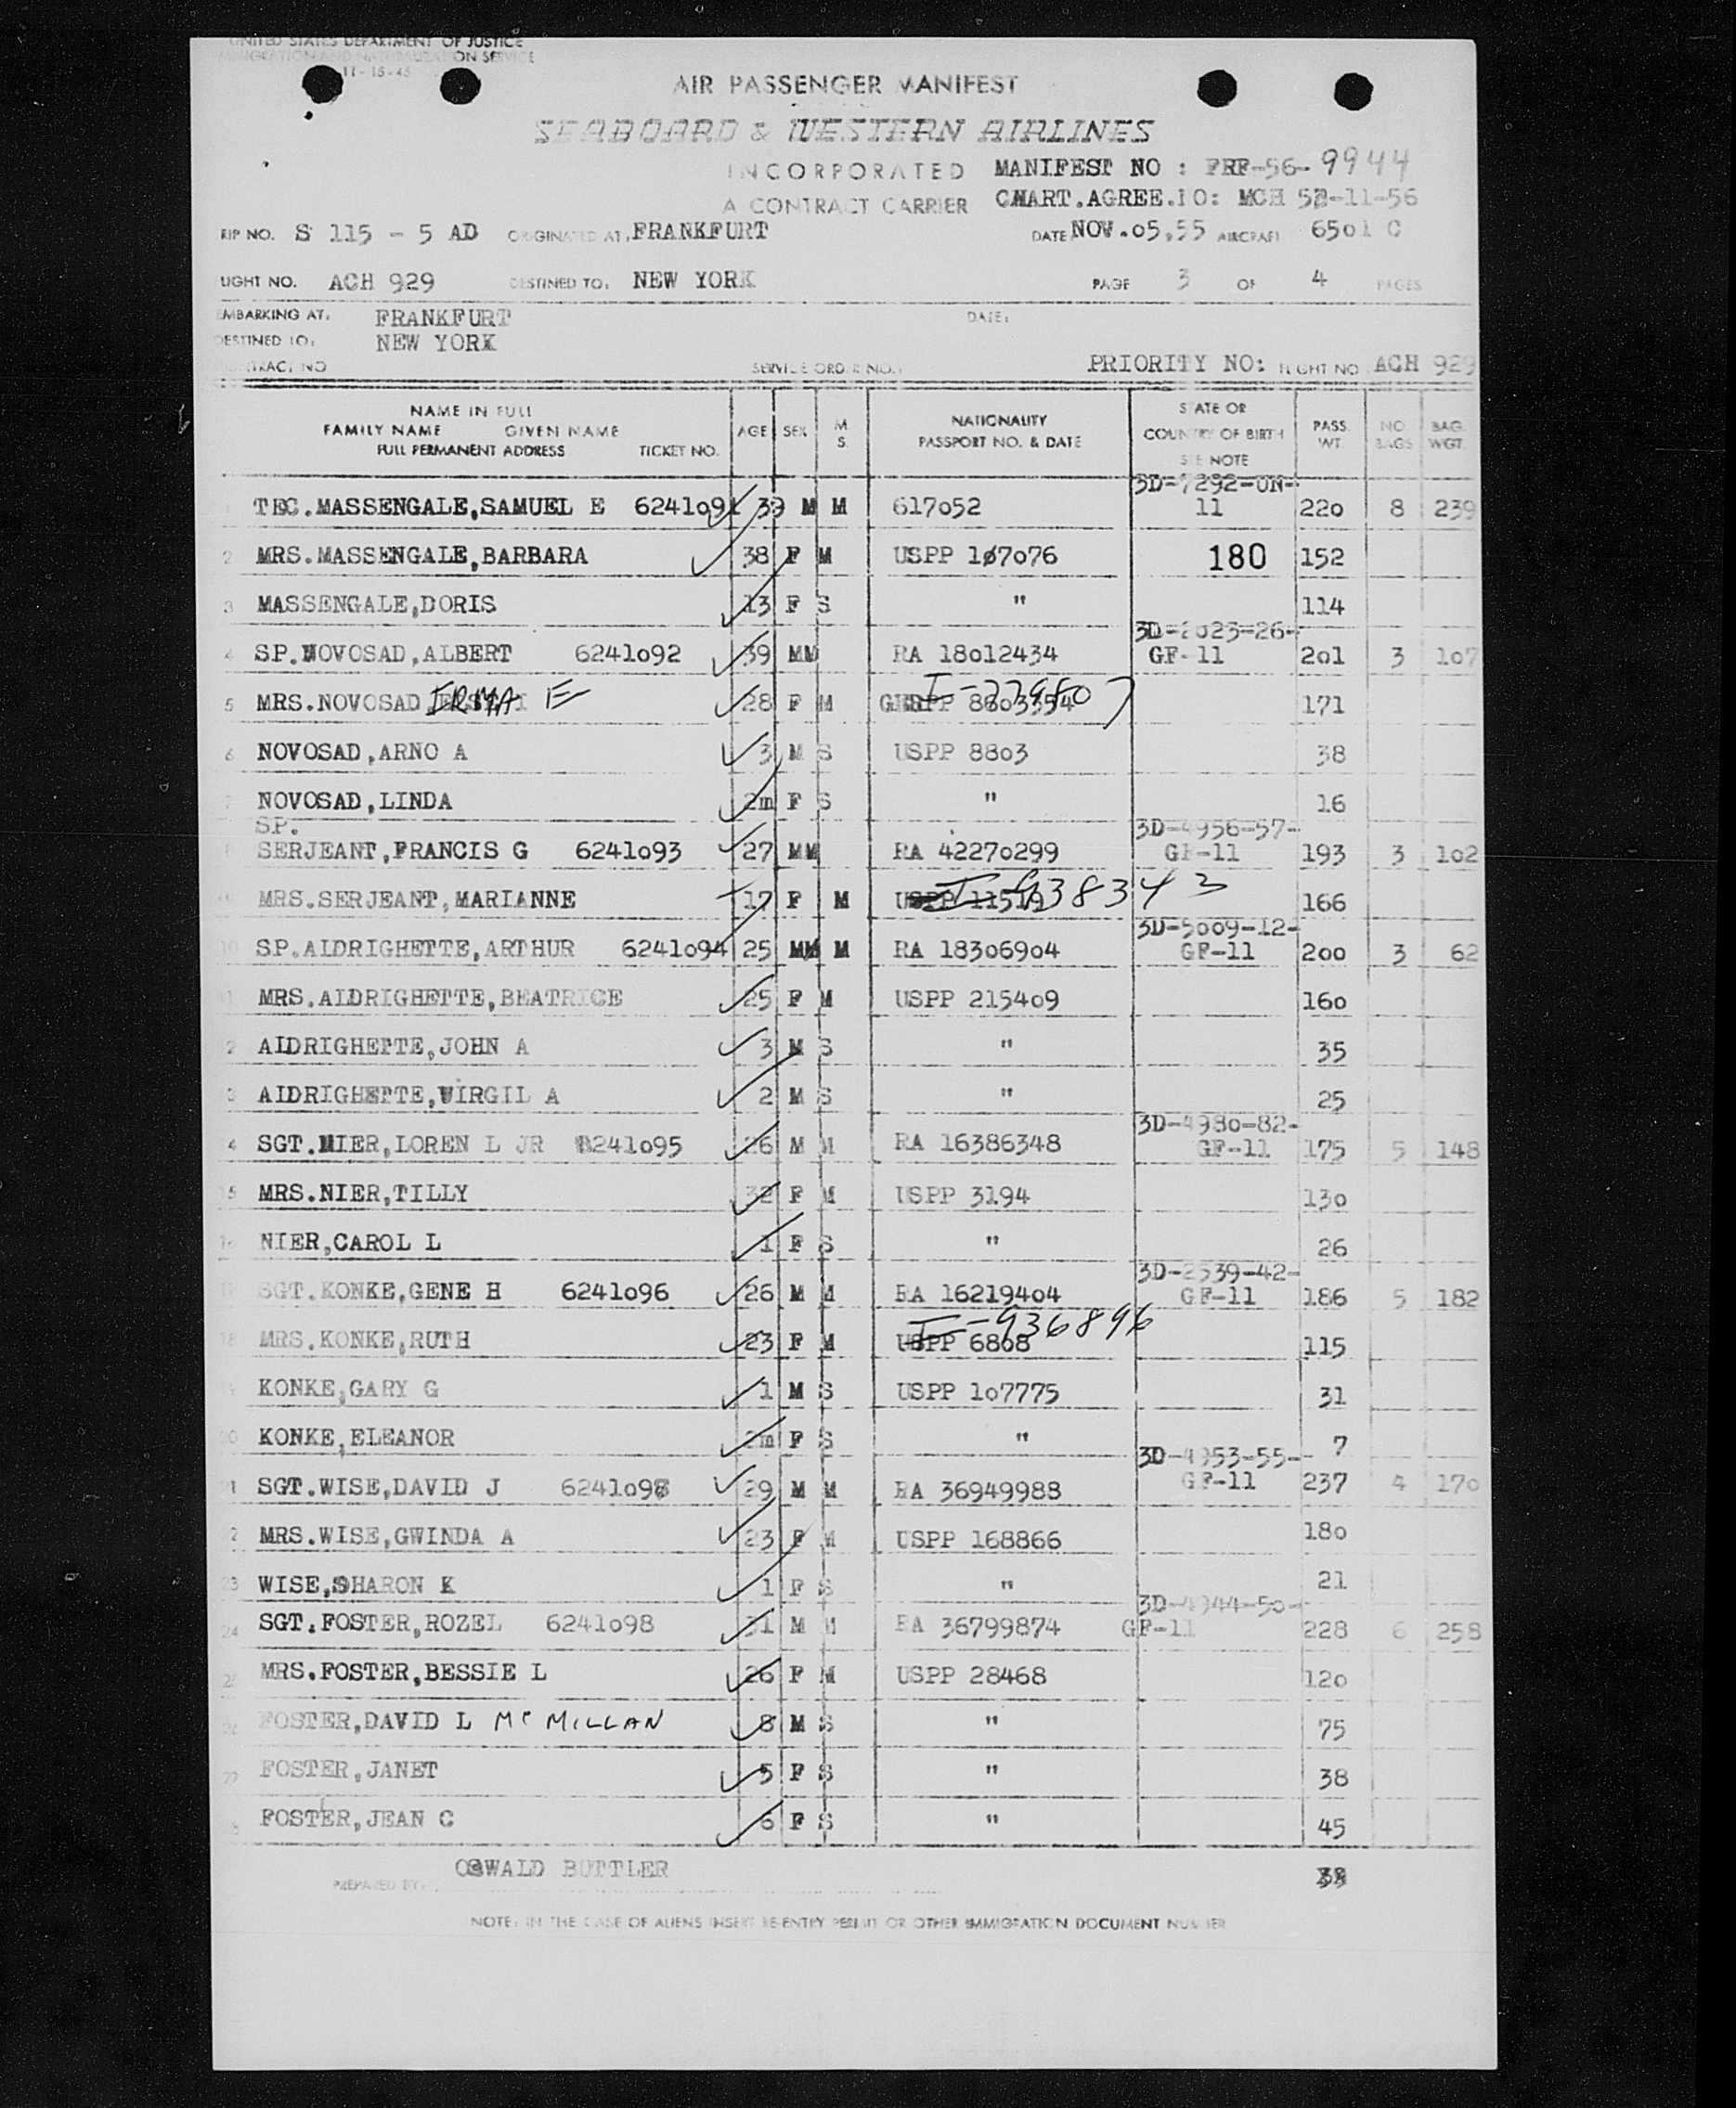 UNITED STATES DEPARTMENT OF JUSTICE
ON SERVICE
11-15-45
AIR PASSENGER MANIFEST
SEABOARD & WESTERN AIRLINES
INCORPORATED MANIFEST NO : FRF-56-9944
A CONTRACT CARRIER CHART.AGREE.IO: MCH 52-11-56
RIP NO. S 115 - 5 AD ORIGINATED AT, FRANKFURT DATE NOV.05,55 AIRCRAFT 6501 C
LIGHT NO. ACH 929 DESTINED TO, NEW YORK PAGE 3 OF 4 PAGES
EMBARKING AT, FRANKFURT DATE,
DESTINED TO, NEW YORK
TRACT NO SERVICE ORDER NO. PRIORITY NO: FLIGHT NO ACH 929
NAME IN FULL
FAMILY NAME GIVEN NAME
FULL PERMANENT ADDRESS TICKET NO. AGE SEX M S. NATIONALITY PASSPORT NO. & DATE STATE OR COUNTRY OF BIRTH SEE NOTE PASS. WT. NO BAGS BAG. WGT.
3D-7292-UN-
TEC.MASSENGALE,SAMUEL E 6241091 39 M M 617052 11 220 8 239
2 MRS.MASSENGALE,BARBARA 38 F M USPP 107076 180 152
3 MASSENGALE,DORIS 13 F S " 114
3D-2023-26-
4 SP.NOVOSAD,ALBERT 6241092 39 MM RA 18012434 GF-11 201 3 107
5 MRS.NOVOSAD IRMA E 28 F M 171
6 NOVOSAD,ARNO A 3 M S USPP 8803 38
7 NOVOSAD,LINDA 2m F S " 16
SP. 3D-4956-57-
8 SERJEANT,FRANCIS G 6241093 27 MM RA 42270299 GF-11 193 3 102
MRS.SERJEANT,MARIANNE 17 F M I-938343 166
3D-5009-12-
10 SP.ALDRIGHETTE,ARTHUR 6241094 25 M M RA 18306904 GF-11 200 3 62
11 MRS.ALDRIGHETTE,BEATRICE 25 F M USPP 215409 160
2 AIDRIGHETTE,JOHN A 3 M S " 35
3 AIDRIGHETTE,VIRGIL A 2 M S " 25
3D-4980-82-
4 SGT.NIER,LOREN L JR 6241095 26 M M RA 16386348 GF-11 175 5 148
15 MRS.NIER,TILLY 32 F M USPP 3194 130
16 NIER,CAROL L 1 F S " 26
3D-2539-42-
17 SGT.KONKE,GENE H 6241096 26 M M RA 16219404 GF-11 186 5 182
18 MRS.KONKE,RUTH 23 F M USPP 6808 I-936896 115
KONKE,GARY G 1 M S USPP 107775 31
20 KONKE,ELEANOR 2m F S " 7
3D-4953-55-
21 SGT.WISE,DAVID J 6241097 29 M M RA 36949988 GF-11 237 4 170
2 MRS.WISE,GWINDA A 23 F M USPP 168866 180
23 WISE,SHARON K 1 F S " 21
3D-4944-50-
24 SGT.FOSTER,ROZEL 6241098 31 M M RA 36799874 GF-11 228 6 258
25 MRS.FOSTER,BESSIE L 26 F M USPP 28468 120
26 FOSTER,DAVID L Mc MILLAN 8 M S " 75
27 FOSTER,JANET 5 F S " 38
8 FOSTER,JEAN C 6 F S " 45
PREPARED BY: OSWALD BUTTLER
NOTE: IN THE CASE OF ALIENS INSERT RE-ENTRY PERMIT OR OTHER IMMIGRATION DOCUMENT NUMBER